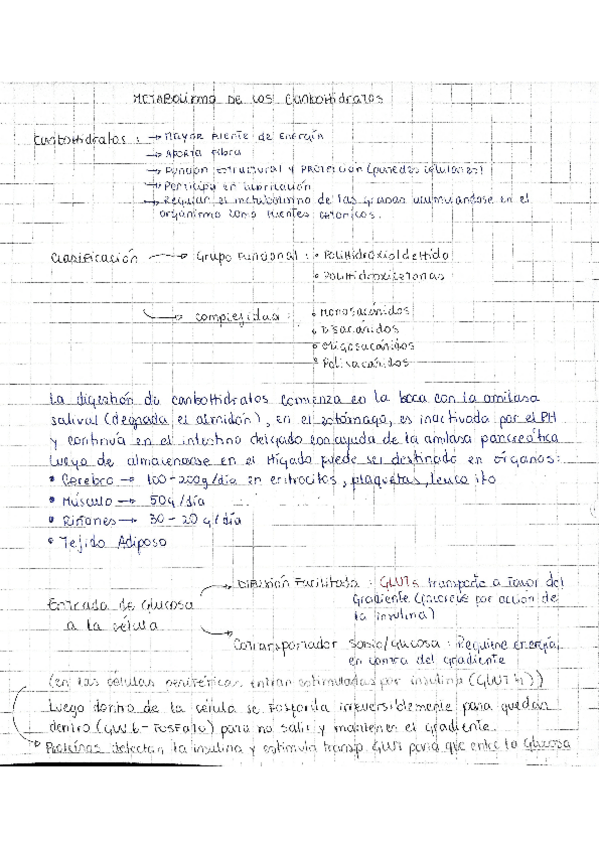 METABOLISMO DE LOS CARBOHIDRATOS
Carbohidratos : → Mayor fuente de energía
→ Aporta fibra
→ Función estructural y protección (paredes celulares)
→ Participa en lubricación
→ Regular el metabolismo de las grasas acumulandose en el
organismo como fuentes
Clasificación → Grupo Funcional : • Polihidroxialdehido
• Polihidroxicetonas
→ complejidad : • Monosacáridos
• Disacáridos
• Oligosacáridos
• Polisacáridos
La digestión de carbohidratos comienza en la boca con la amilasa
salival (degrada el almidón), en el estómago, es inactivada por el PH
y continúa en el intestino delgado con ayuda de la amilasa pancreática
Luego de almacenarse en el Hígado puede ser destinado en órganos:
• Cerebro → 100-200g/día en eritrocitos, plaquetas, leuco ito
• Músculo → 50g/día
• Riñones → 30-20 g/día
• Tejido Adiposo
Entrada de Glucosa
a la célula
→ Difusión Facilitada : GLUTs transporta a favor del
Gradiente ( por acción de
la insulina)
→ Cotransportador Sodio/Glucosa : Requiere Energía,
en contra del gradiente
(en las células periféricas entran estimuladas por insulina (GLUT4))
Luego dentro de la célula se fosforila irreversiblemente para quedar
dentro (Glu.6-Fosfato) para no salir y mantener el gradiente.
→ Proteínas detectan la insulina y estimula transp. GLUT para que entre la Glucosa